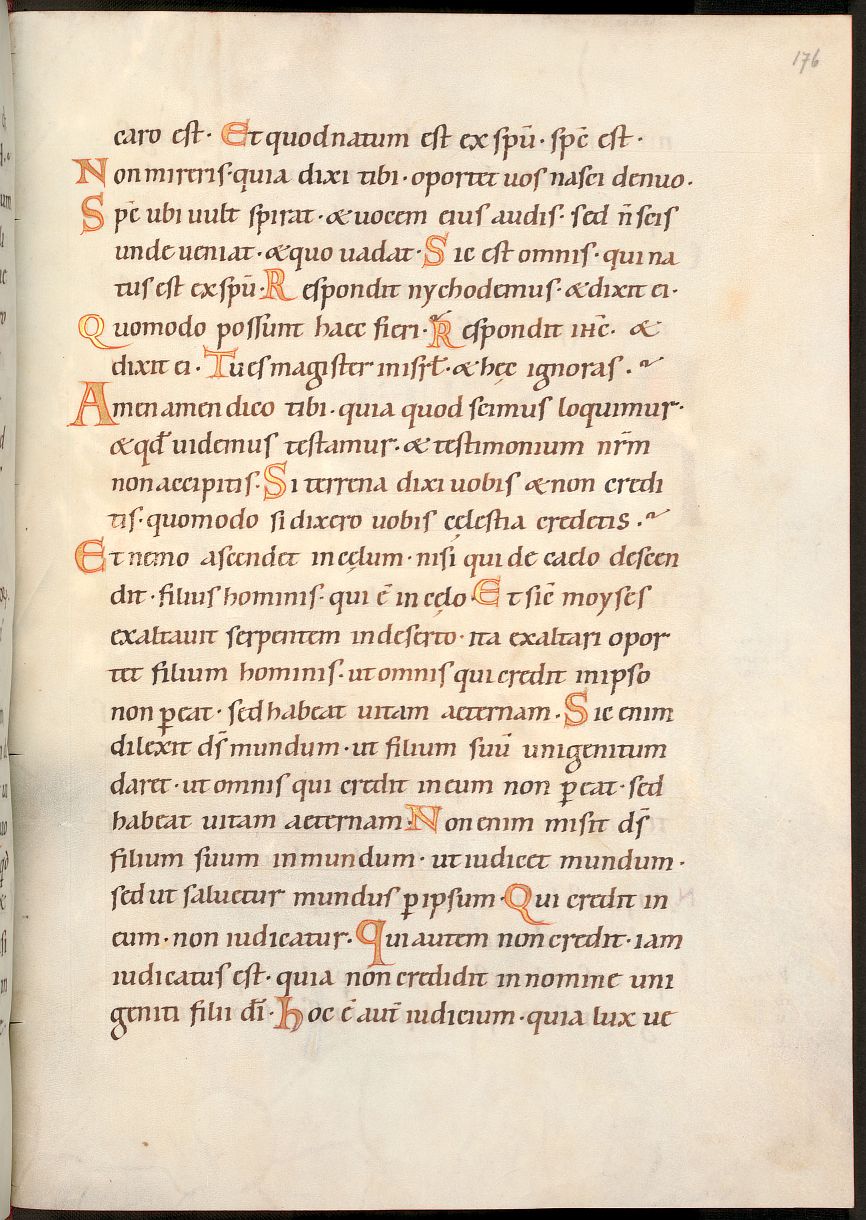 176
caro est· Et quod natum est ex spū· spc̄ est·
Non mireris· quia dixi tibi· oportet uos nasci denuo·
Spc̄ ubi uult spirat· & uocem eius audis· sed n̄ scis
unde ueniat· & quo uadat· Sic est omnis· qui na
tus est ex spū· Respondit nychodemus· & dixit ei·
Quomodo possunt haec fieri· Respondit ihc̄· &
dixit ei· Tu es magister in isrl̄· & hęc ignoras·
Amen amen dico tibi· quia quod scimus loquimur·
& qd̄ uidemus testamur· & testimonium nr̄m
non accipitis· Si terrena dixi uobis & non credi
tis· quomodo si dixero uobis cęlestia credetis·
Et nemo ascendet in cęlum· nisi qui de caelo descen
dit· filius hominis· qui ē in cęlo· Et sic̄ moyses
exaltauit serpentem in deserto· ita exaltari opor
tet filium hominis· ut omnis qui credit in ipso
non ꝑeat· sed habeat uitam aeternam· Sic enim
dilexit ds̄ mundum· ut filium suū unigenitum
daret· ut omnis qui credit in eum non ꝑeat· sed
habeat uitam aeternam· Non enim misit ds̄
filium suum in mundum· ut iudicet mundum·
sed ut saluetur mundus ꝑ ipsum· Qui credit in
eum· non iudicatur· Qui autem non credit· iam
iudicatus est· quia non credidit in nomine uni
geniti filii dī· Hoc ē aut̄ iudicium· quia lux ue